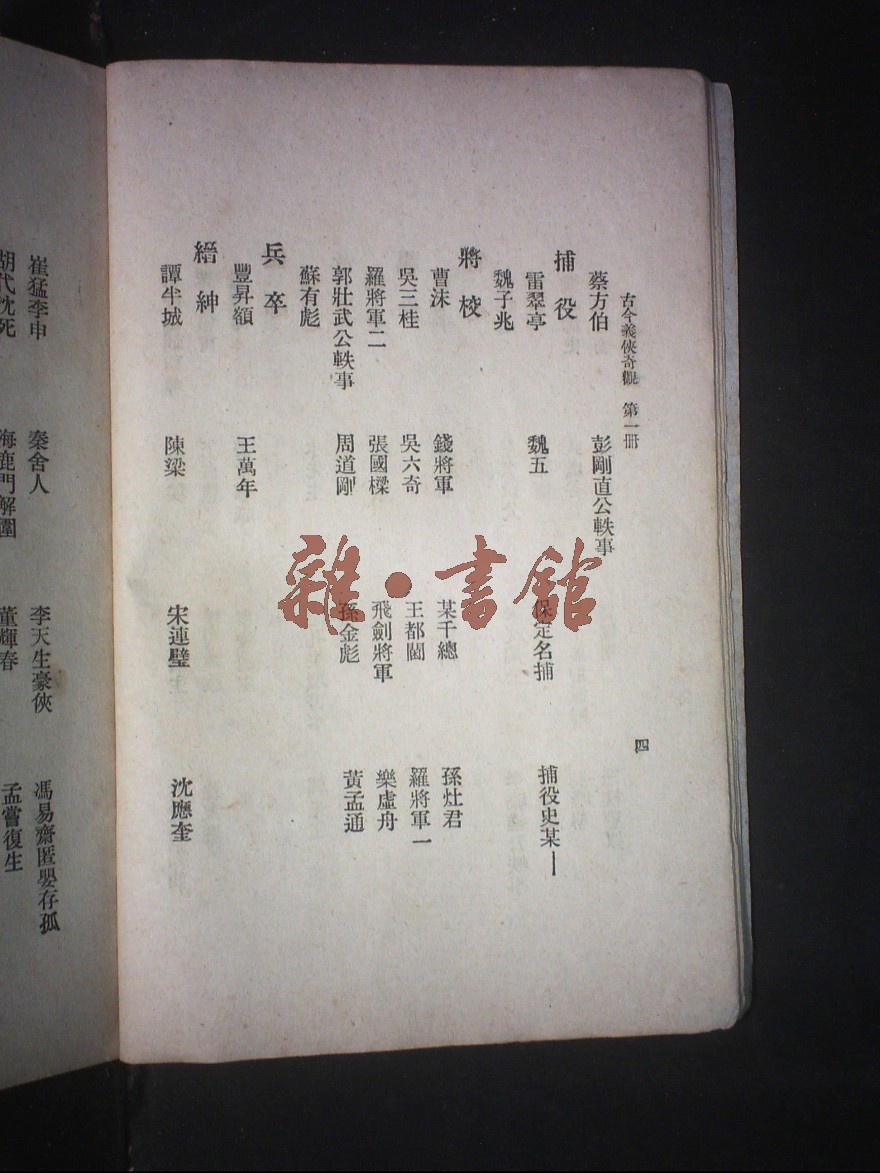 古今義俠奇觀 第一冊 四
蔡方伯 彭剛直公軼事
捕役
雷翠亭 魏五 保定名捕 捕役史某一
魏子兆
將校
曹沫 錢將軍 某千總 孫灶君
吳三桂 吳六奇 王都閫 羅將軍一
羅將軍二 張國樑 飛劍將軍 樂虛舟
郭壯武公軼事 周道剛 孫金彪 黃孟通
蘇有彪
兵卒
豐昇額 王萬年
縉紳
譚半城 陳梁 宋連璧 沈應奎
崔猛李申 秦舍人 李天生豪俠 馮易齋匿嬰存孤
胡代沈死 海鹿門解圍 董輝春 孟嘗復生
雜·書館